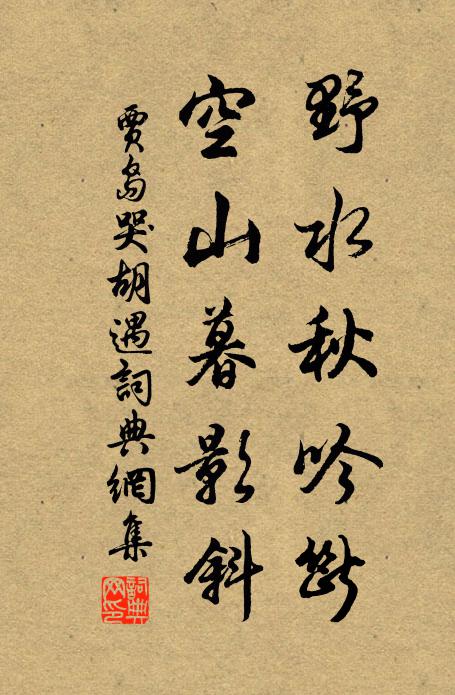 野水秋吟斷
空山暮影斜
賈島哭胡遇詞典網集
詞典網印